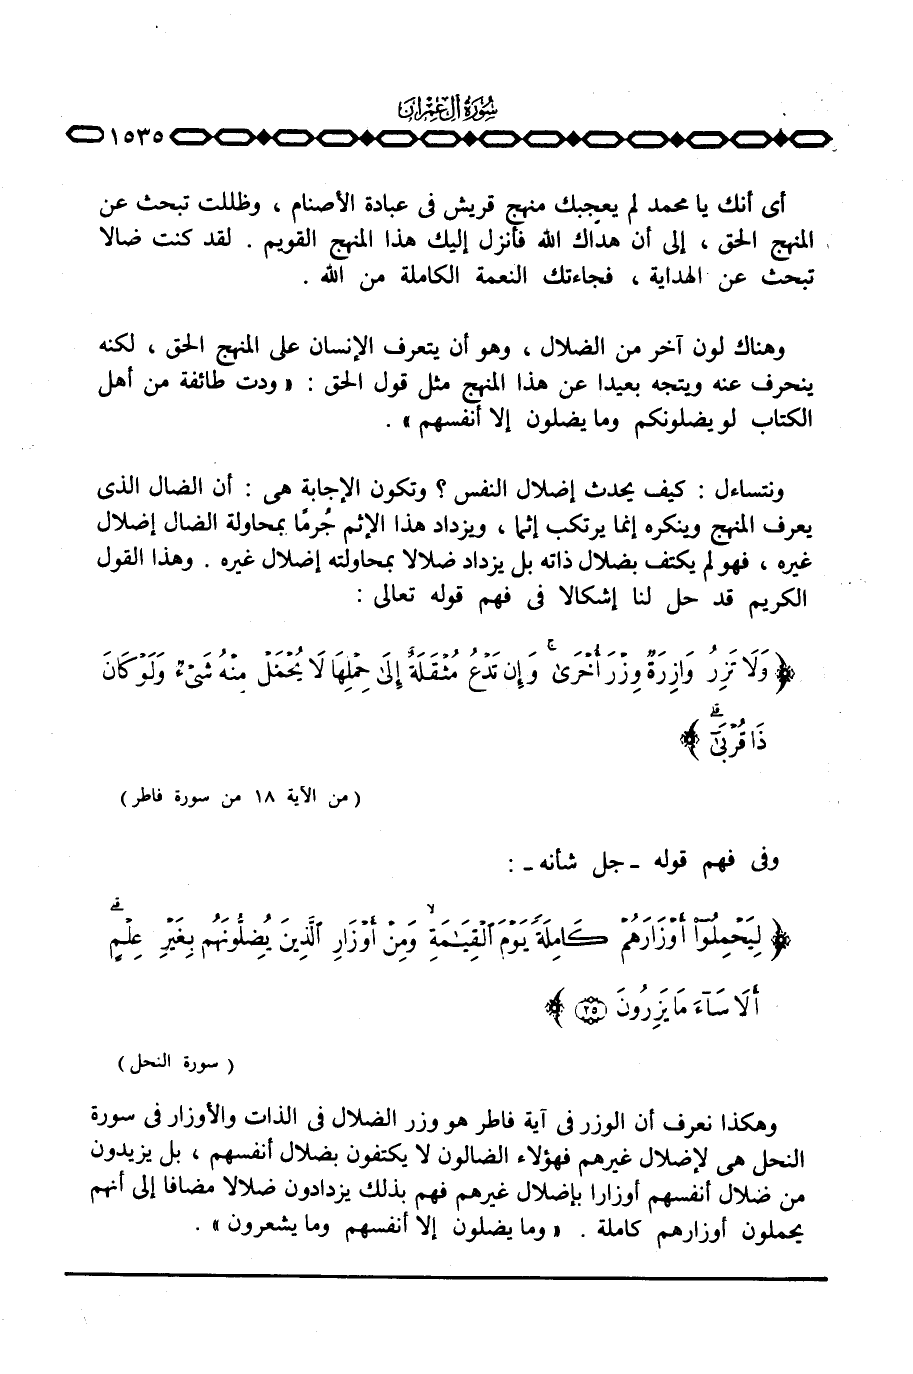 سُورَةُ آلِ عِمْرَانَ
١٥٣٥
أى أنك يا محمد لم يعجبك منهج قريش فى عبادة الأصنام ، وظللت تبحث عن
المنهج الحق ، إلى أن هداك الله فأنزل إليك هذا المنهج القويم . لقد كنت ضالا
تبحث عن الهداية ، فجاءتك النعمة الكاملة من الله .
وهناك لون آخر من الضلال ، وهو أن يتعرف الإنسان على المنهج الحق ، لكنه
ينحرف عنه ويتجه بعيدا عن هذا المنهج مثل قول الحق : « ودت طائفة من أهل
الكتاب لو يضلونكم وما يضلون إلا أنفسهم » .
ونتساءل : كيف يحدث إضلال النفس ؟ وتكون الإجابة هى : أن الضال الذى
يعرف المنهج وينكره إنما يرتكب إثما ، ويزداد هذا الإثم جُرمًا بمحاولة الضال إضلال
غيره ، فهو لم يكتف بضلال ذاته بل يزداد ضلالا بمحاولته إضلال غيره . وهذا القول
الكريم قد حل لنا إشكالا فى فهم قوله تعالى :
﴿ وَلَا تَزِرُ وَازِرَةٌ وِزْرَ أُخْرَىٰ ۚ وَإِن تَدْعُ مُثْقَلَةٌ إِلَىٰ حِمْلِهَا لَا يُحْمَلْ مِنْهُ شَىْءٌ وَلَوْ كَانَ
ذَا قُرْبَىٰٓ ۗ ﴾
( من الآية ١٨ من سورة فاطر )
وفى فهم قوله ـ جل شأنه ـ :
﴿ لِيَحْمِلُوٓا۟ أَوْزَارَهُمْ كَامِلَةً يَوْمَ ٱلْقِيَـٰمَةِ ۙ وَمِنْ أَوْزَارِ ٱلَّذِينَ يُضِلُّونَهُم بِغَيْرِ عِلْمٍ ۗ
أَلَا سَآءَ مَا يَزِرُونَ ۝٢٥ ﴾
( سورة النحل )
وهكذا نعرف أن الوزر فى آية فاطر هو وزر الضلال فى الذات والأوزار فى سورة
النحل هى لإضلال غيرهم فهؤلاء الضالون لا يكتفون بضلال أنفسهم ، بل يزيدون
من ضلال أنفسهم أوزارا بإضلال غيرهم فهم بذلك يزدادون ضلالا مضافا إلى أنهم
يحملون أوزارهم كاملة . « وما يضلون إلا أنفسهم وما يشعرون » .